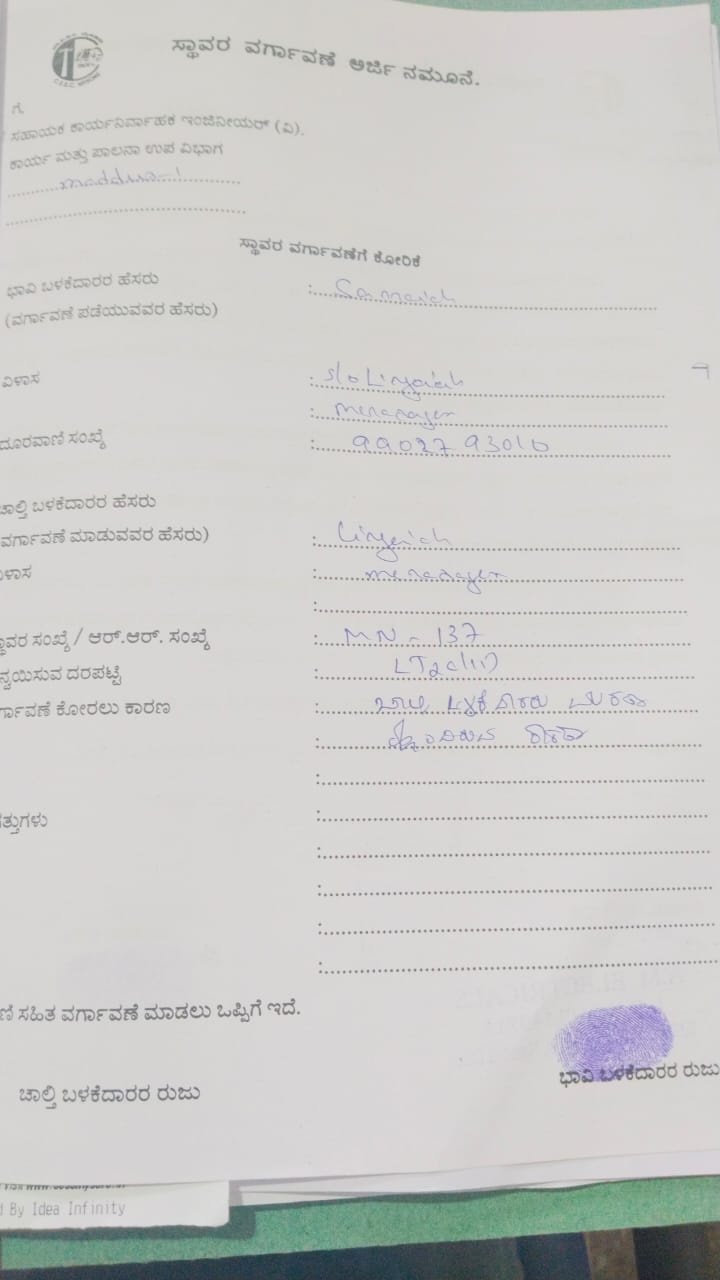 ಸ್ಥಾವರ ವರ್ಗಾವಣೆ ಅರ್ಜಿ ನಮೂನೆ.
ಗೆ,
ಸಹಾಯಕ ಕಾರ್ಯನಿರ್ವಾಹಕ ಇಂಜಿನೀಯರ್ (ವಿ).
ಕಾರ್ಯ ಮತ್ತು ಪಾಲನಾ ಉಪ ವಿಭಾಗ
ಸ್ಥಾವರ ವರ್ಗಾವಣೆಗೆ ಕೋರಿಕೆ
ಭಾವಿ ಬಳಕೆದಾರರ ಹೆಸರು :
(ವರ್ಗಾವಣೆ ಪಡೆಯುವವರ ಹೆಸರು)
ವಿಳಾಸ : S/o Lingaiah
:
ದೂರವಾಣಿ ಸಂಖ್ಯೆ : 9902793010
ಚಾಲ್ತಿ ಬಳಕೆದಾರರ ಹೆಸರು
ವರ್ಗಾವಣೆ ಮಾಡುವವರ ಹೆಸರು) : Lingaiah
ಳಾಸ :
:
ಸ್ಥಾವರ ಸಂಖ್ಯೆ / ಆರ್.ಆರ್. ಸಂಖ್ಯೆ : MN - 137
ನ್ವಯಿಸುವ ದರಪಟ್ಟಿ :
ರ್ಗಾವಣೆ ಕೋರಲು ಕಾರಣ : ಚಾಲ್ತಿ ಬಳಕೆದಾರರು ಮರಣ
: ಹೊಂದಿರುವ ಕಾರಣ
:
ತ್ತುಗಳು :
:
:
:
:
ಣಿ ಸಹಿತ ವರ್ಗಾವಣೆ ಮಾಡಲು ಒಪ್ಪಿಗೆ ಇದೆ.
ಚಾಲ್ತಿ ಬಳಕೆದಾರರ ರುಜು
ಭಾವಿ ಬಳಕೆದಾರರ ರುಜು
d By Idea Infinity